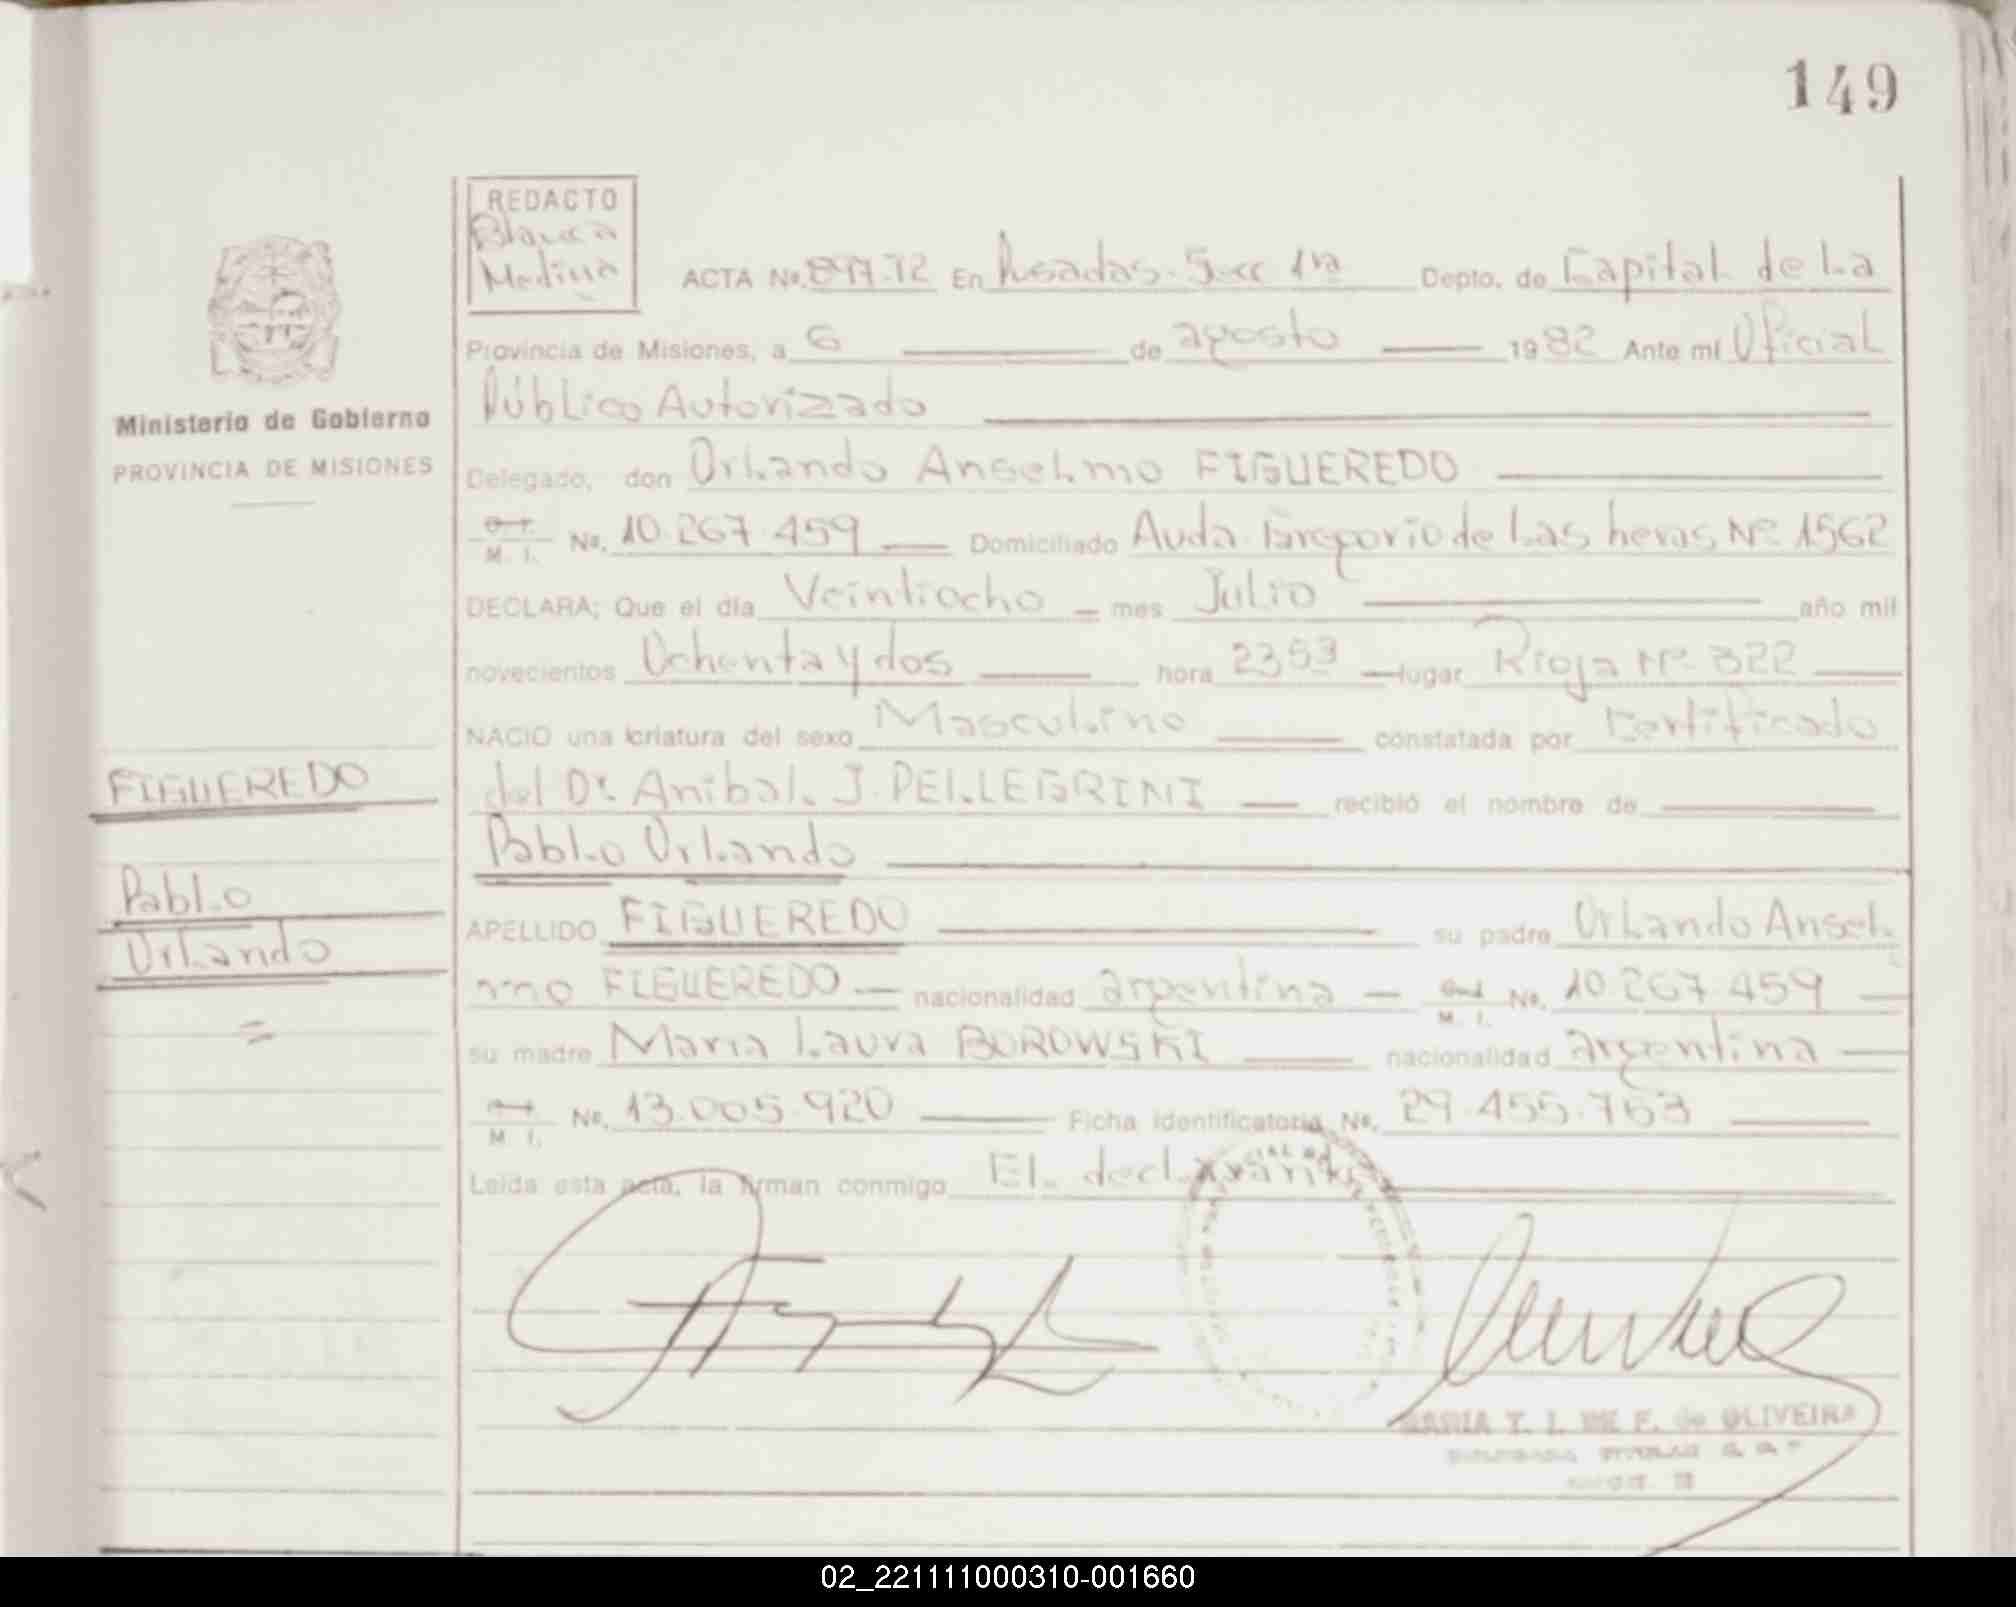 149
REDACTO
Blanca
Medina
ACTA No. En Posadas Secc 1ra Depto. de Capital de La
Provincia de Misiones, a 6 de agosto 1982 Ante mí Oficial
Público Autorizado
Delegado, don Orlando Anselmo FIGUEREDO
M. I. No. 10.267.459 Domiciliado Avda. Gregorio de Las heras Nº 1562
DECLARA; Que el día Veintiocho mes Julio año mil
novecientos Ochenta y dos hora 2353 lugar Rioja Nº 322
NACIO una criatura del sexo Masculino constatada por Certificado
del Dr. Anibal. J. PELLEGRINI recibió el nombre de
Pablo Orlando
APELLIDO FIGUEREDO su padre Orlando Ansel
mo FIGUEREDO nacionalidad argentina M. I. No. 10.267.459
su madre Maria Laura BOROWSKI nacionalidad argentina
M. I. No. 13.005.920 Ficha identificatoria No. 29.455.753
Leída esta acta, la firman conmigo El declarante
MARIA T. I. DE F. de OLIVEIRA
Ministerio de Gobierno
PROVINCIA DE MISIONES
FIGUEREDO
Pablo
Orlando
02_221111000310-001660